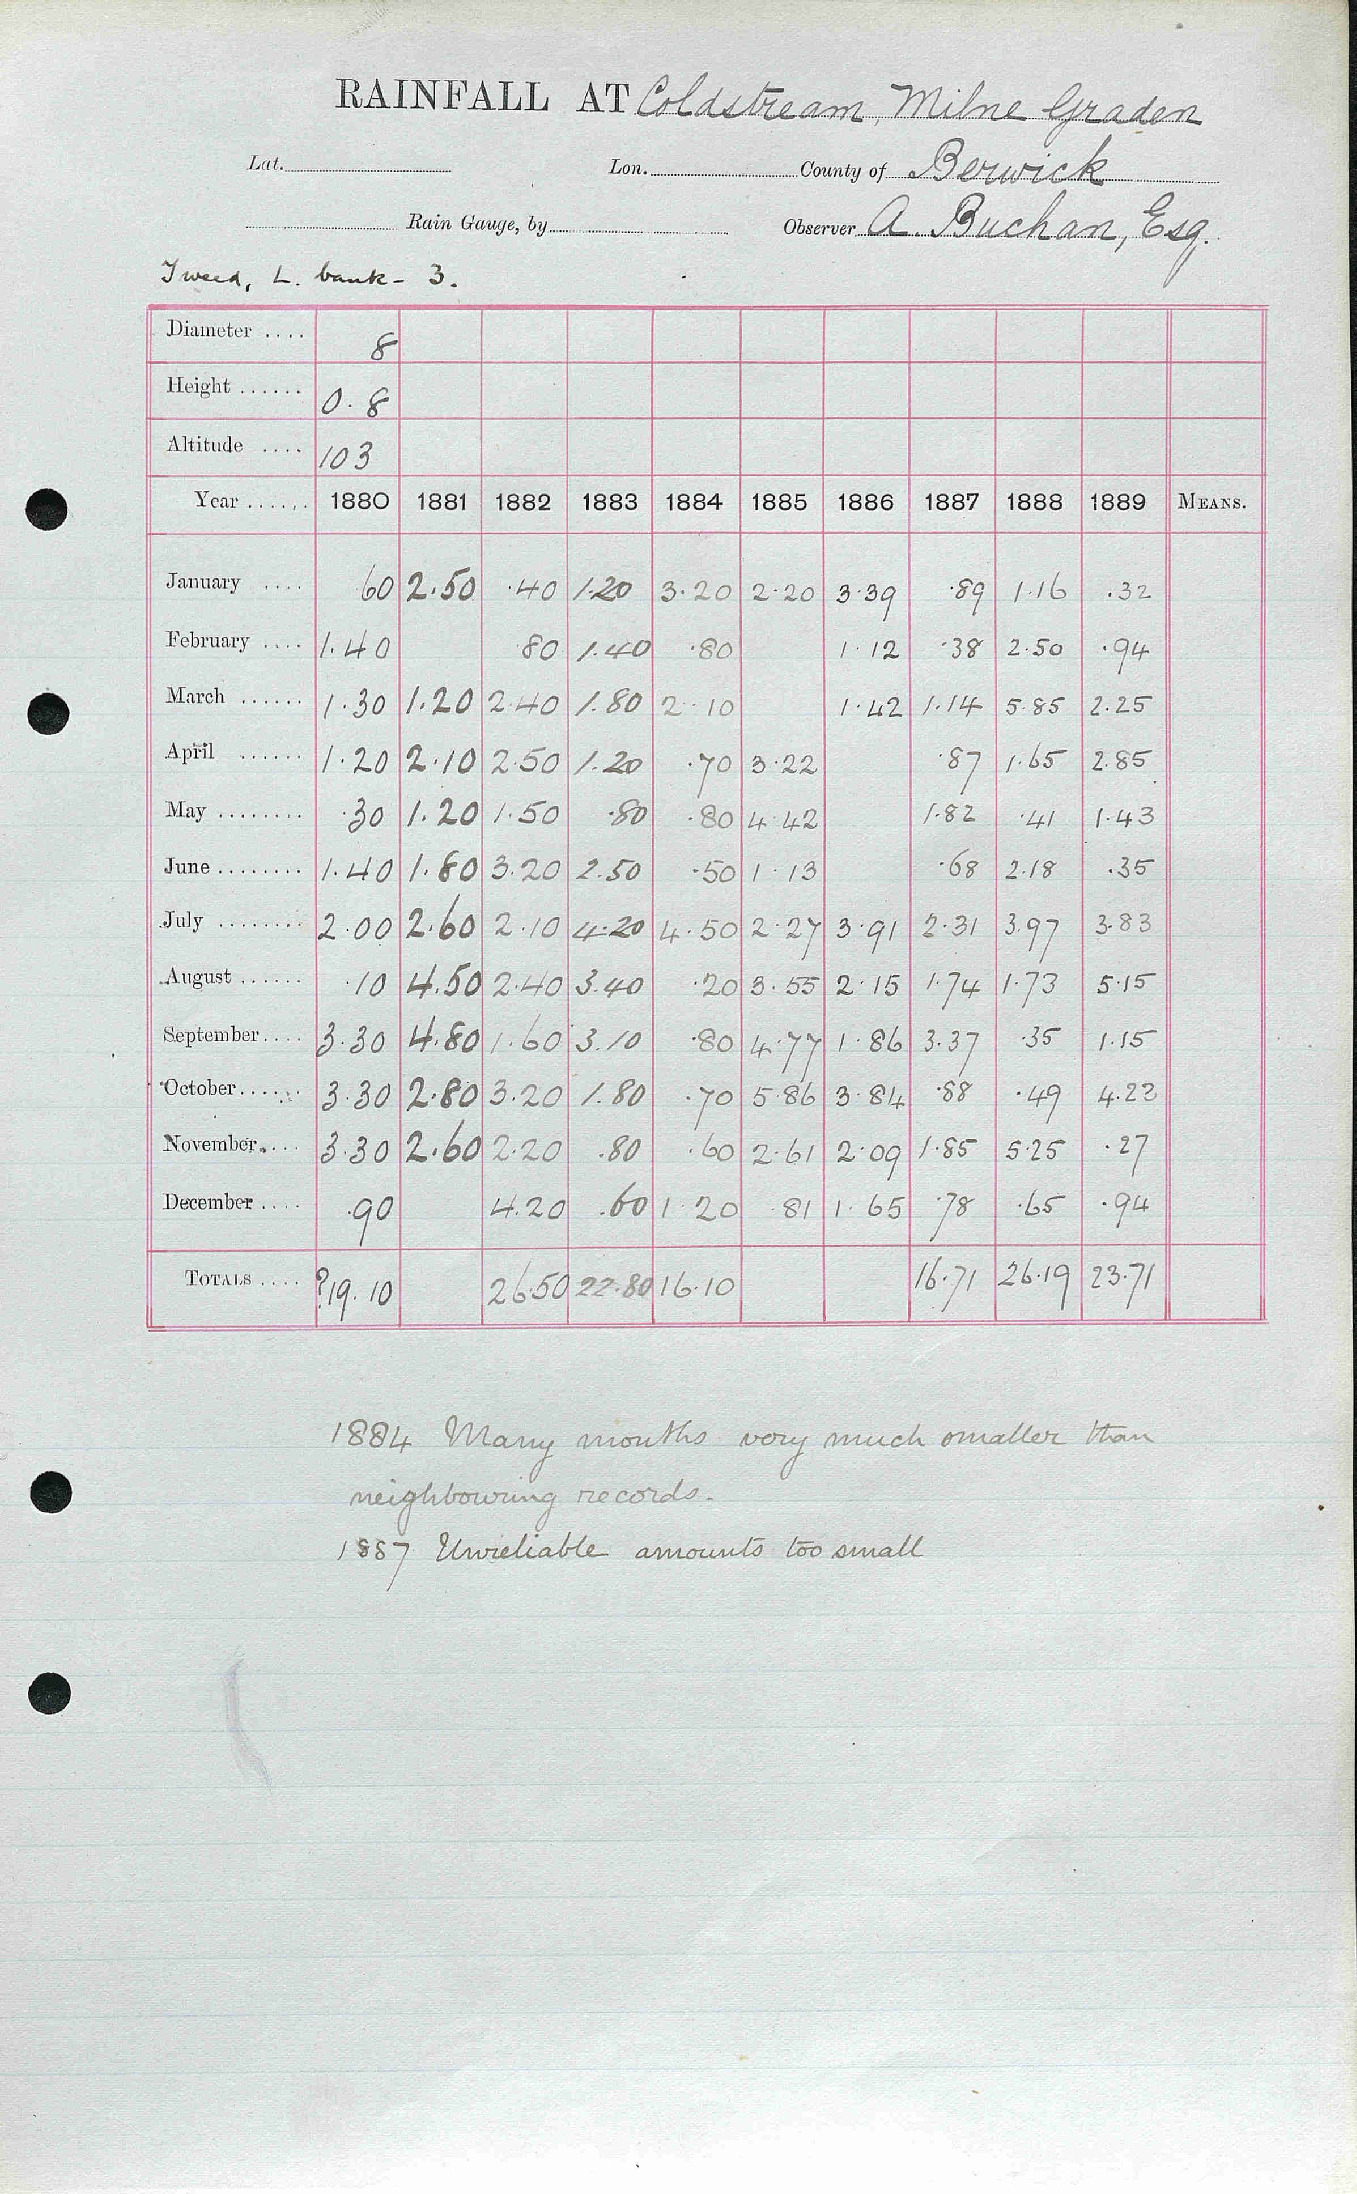 RAINFALL AT Coldstream, Milne Graden
Lat. Lon. County of Berwick
Rain Gauge, by Observer A. Buchan, Esq.
Tweed, L. bank - 3.
Diameter .... 8
Height ...... 0.8
Altitude .... 103
Year ...... 1880 1881 1882 1883 1884 1885 1886 1887 1888 1889 MEANS.
January .... 60 2.50 .40 1.20 3.20 2.20 3.39 .89 1.16 .32
February .... 1.40 80 1.40 .80 1.12 .38 2.50 .94
March ...... 1.30 1.20 2.40 1.80 2.10 1.42 1.14 5.85 2.25
April ...... 1.20 2.10 2.50 1.20 .70 3.22 .87 1.65 2.85
May ........ .30 1.20 1.50 .80 .80 4.42 1.82 .41 1.43
June ........ 1.40 1.80 3.20 2.50 .50 1.13 .68 2.18 .35
July ........ 2.00 2.60 2.10 4.20 4.50 2.27 3.91 2.31 3.97 3.83
August ...... .10 4.50 2.40 3.40 .20 3.55 2.15 1.74 1.73 5.15
September .... 3.30 4.80 1.60 3.10 .80 4.77 1.86 3.37 .35 1.15
October ...... 3.30 2.80 3.20 1.80 .70 5.86 3.84 .88 .49 4.23
November .... 3.30 2.60 2.20 .80 .60 2.61 2.09 1.85 5.25 .27
December .... .90 4.20 .60 1.20 .81 1.65 .78 .65 .94
TOTALS .... ?19.10 26.50 22.80 16.10 16.71 26.19 23.71
1884 Many months very much smaller than
neighbouring records.
1887 Unreliable amounts too small